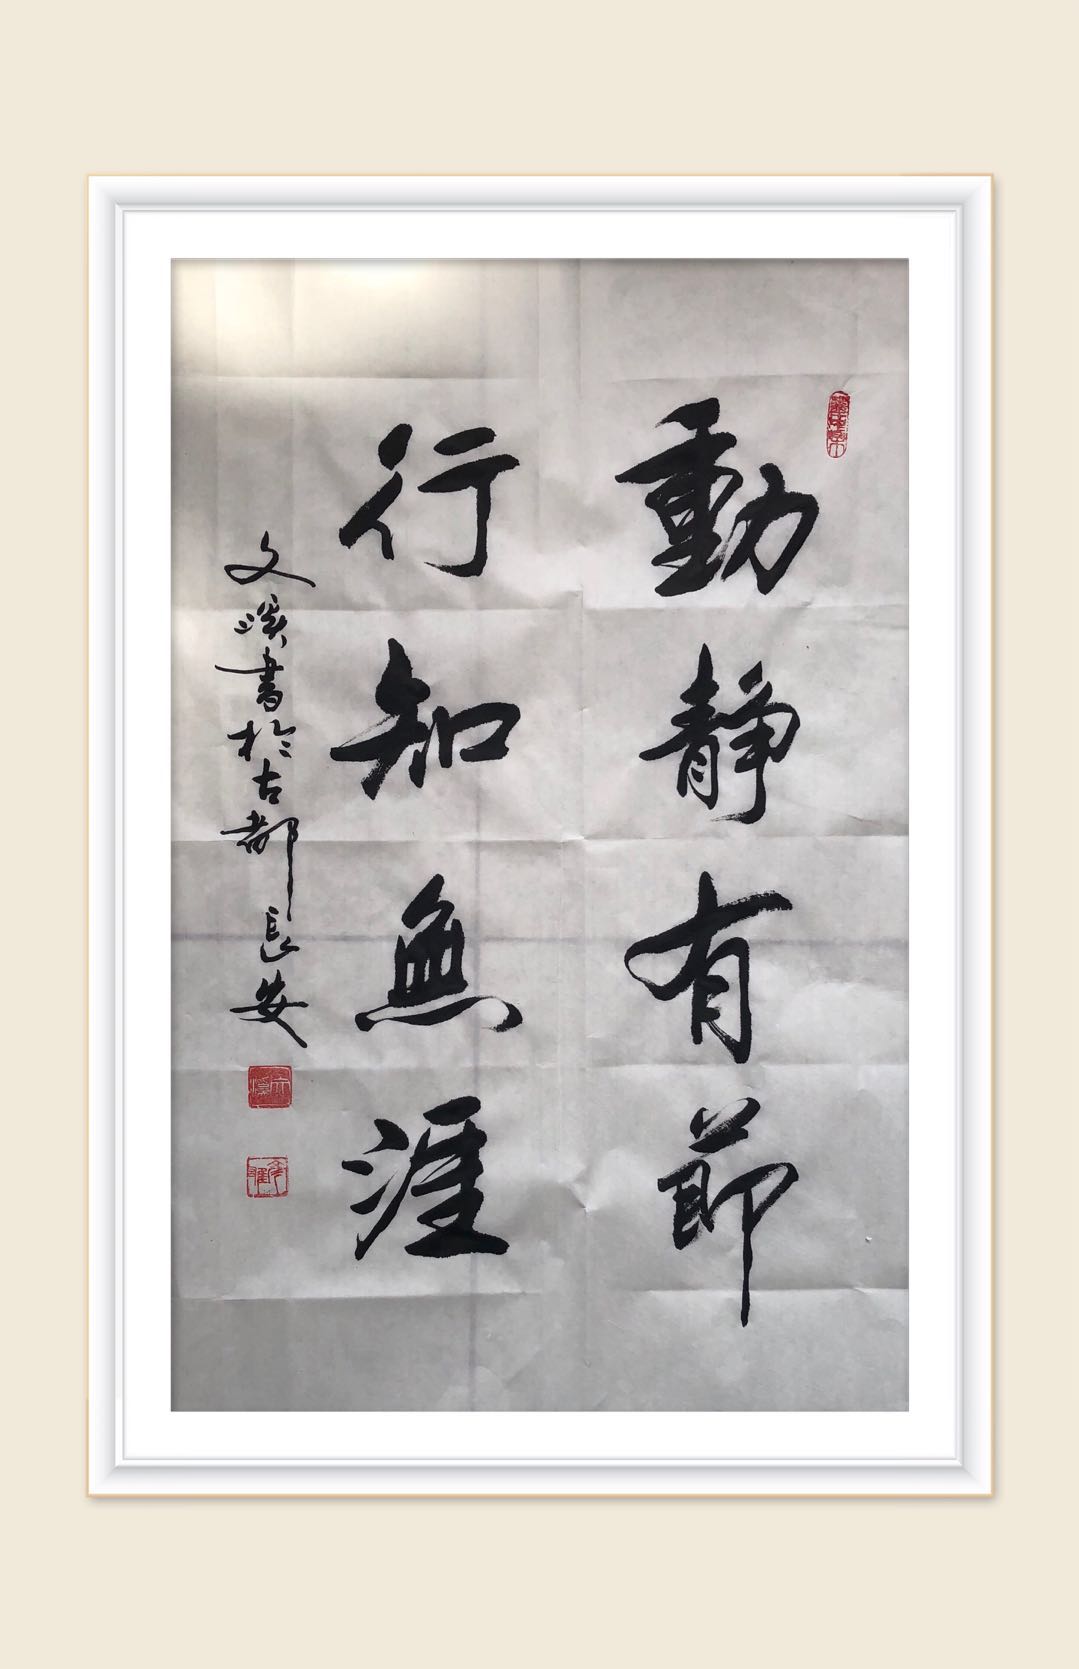 動靜有節
行知無涯
文溪書於古都長安